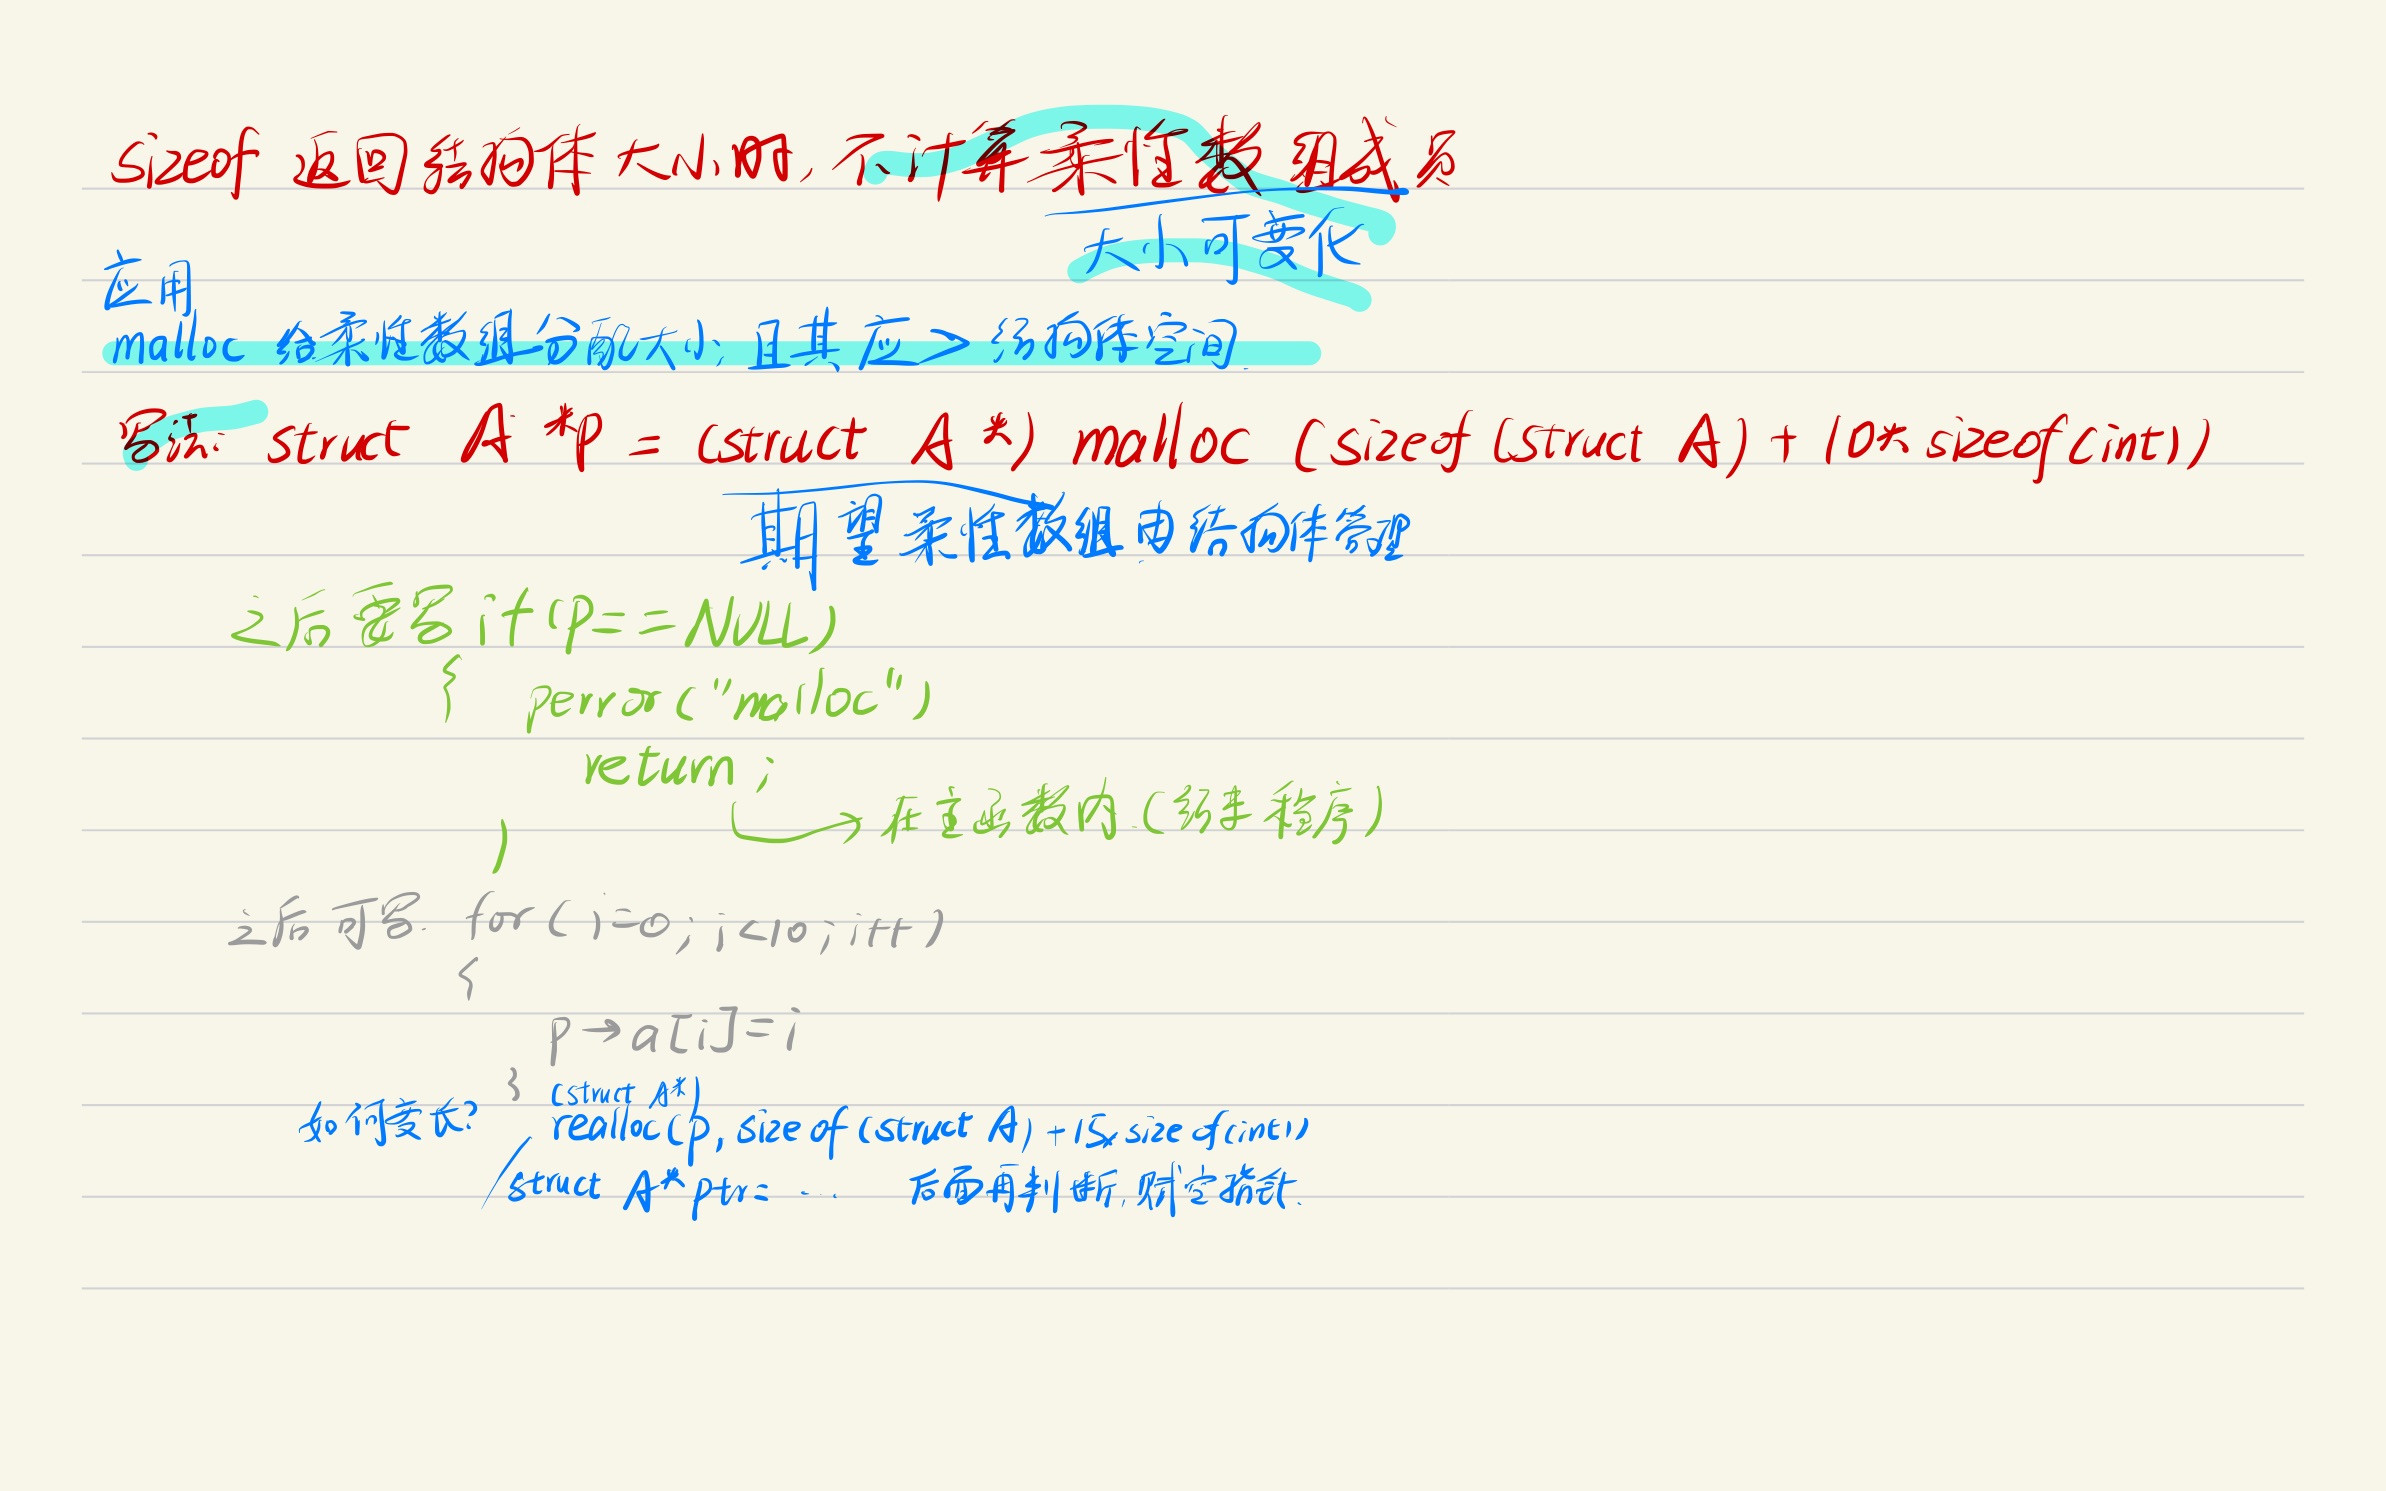 sizeof 返回结构体大小时, 不计算柔性数组成员
大小可变化
应用
malloc 给柔性数组分配大小, 且其应 > 结构体空间.
写法: struct A *p = (struct A*) malloc (sizeof(struct A) + 10* sizeof(int))
期望柔性数组由结构体管理
之后要写 if (p==NULL)
{ perror("malloc")
return;
→ 在主函数内.(结束程序)
}
之后可写. for(i=0; i<10; i++)
{
p→a[i]=i
}
(struct A*)
如何变长? realloc(p, sizeof(struct A)+15*sizeof(int))
struct A* ptr= ... 后面再判断, 赋空指针.